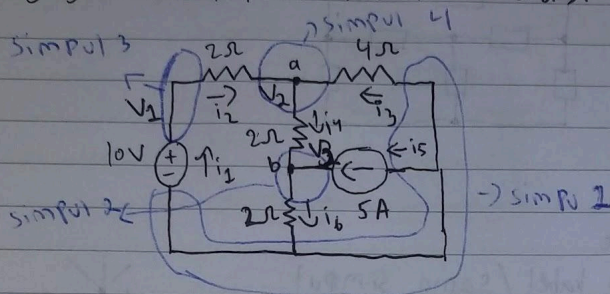 simpul 4
simpul 3
2Ω
a
4Ω
V1
i2
V2
i3
2Ω
i4
V3
i5
10V
+
-
i1
b
simpul 2
2Ω
i6
5A
simpu 2